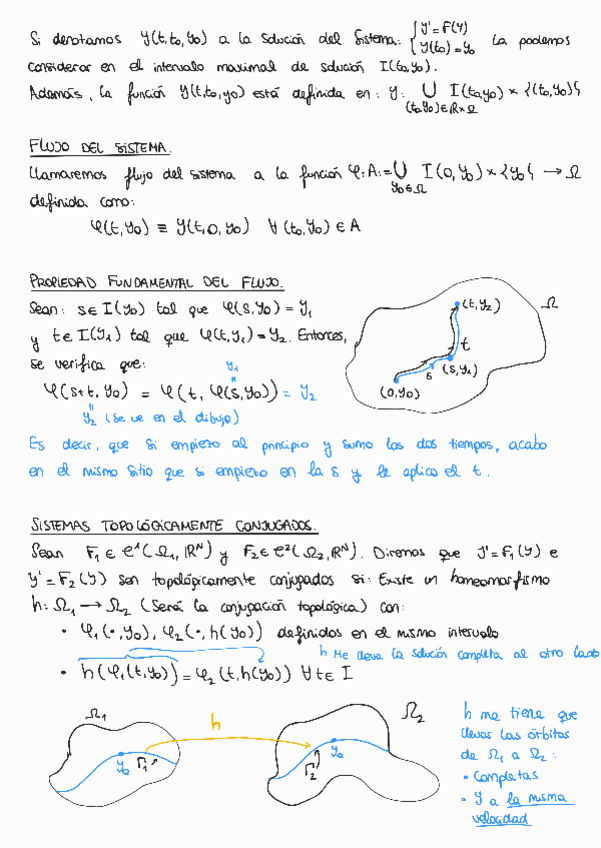 Si denotamos y(t,t₀,y₀) a la solución del sistema: { y' = F(y) y(t₀) = y₀ la podemos
considerar en el intervalo maximal de solución I(t₀,y₀).
Además, la función y(t,t₀,y₀) está definida en: y: ∪ I(t₀,y₀) × {(t₀,y₀)}
(t₀,y₀)∈ℝ×Ω
FLUJO DEL SISTEMA.
Llamaremos flujo del sistema a la función φ: A:= ∪ I(0,y₀) × {y₀} → Ω
y₀∈Ω
definida como:
φ(t,y₀) ≡ y(t,0,y₀) ∀(t₀,y₀) ∈ A
PROPIEDAD FUNDAMENTAL DEL FLUJO.
Sean: s∈I(y₀) tal que φ(s,y₀) = y₁
y t∈I(y₁) tal que φ(t,y₁) = y₂. Entonces,
se verifica que:
y₁
"
φ(s+t,y₀) = φ(t, φ(s,y₀)) = y₂
"
y₂ (se ve en el dibujo)
Ω
(t,y₂)
t
s
(s,y₁)
(0,y₀)
Es decir, que si empiezo al principio y sumo los dos tiempos, acabo
en el mismo sitio que si empiezo en la s y le aplico el t.
SISTEMAS TOPOLÓGICAMENTE CONJUGADOS.
Sean F₁ ∈ C¹(Ω₁, ℝᴺ) y F₂ ∈ C²(Ω₂, ℝᴺ). Diremos que y' = F₁(y) e
y' = F₂(y) son topológicamente conjugados si: Existe un homeomorfismo
h: Ω₁ → Ω₂ (Será la conjugación topológica) con:
• φ₁(·,y₀), φ₂(·,h(y₀)) definidos en el mismo intervalo
h me lleva la solución completa al otro lado
• h(φ₁(t,y₀)) = φ₂(t,h(y₀)) ∀t∈I
Ω₁
y₀
Γ₁
h
Ω₂
y₀
Γ₂
h me tiene que
llevar las órbitas
de Ω₁ a Ω₂:
• Completas
• Y a la misma
velocidad